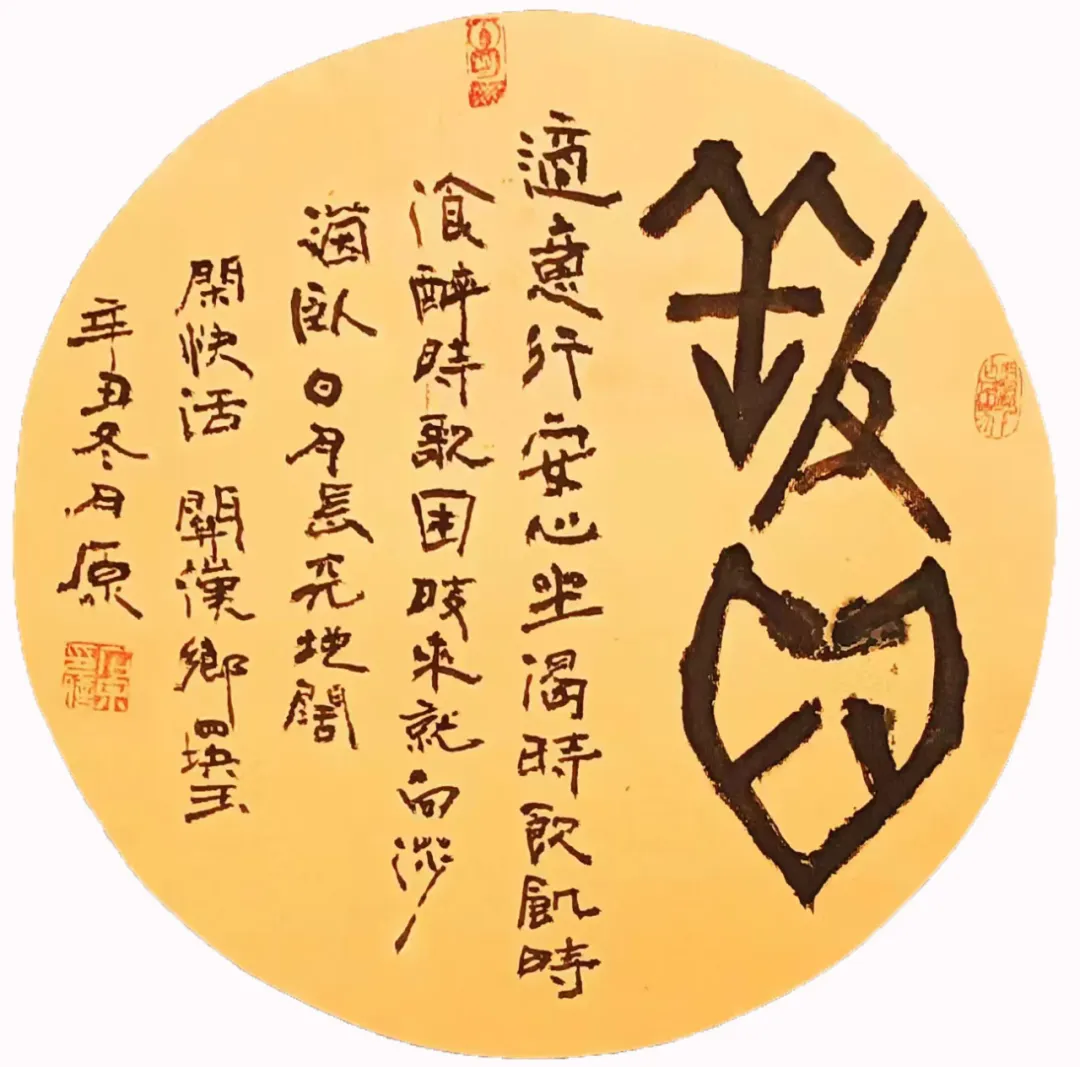 適意行安心坐渴時飲飢時
湌醉時歌困時來就向莎
茵臥日月長天地闊
閑快活 關漢卿四塊玉
辛丑冬月原